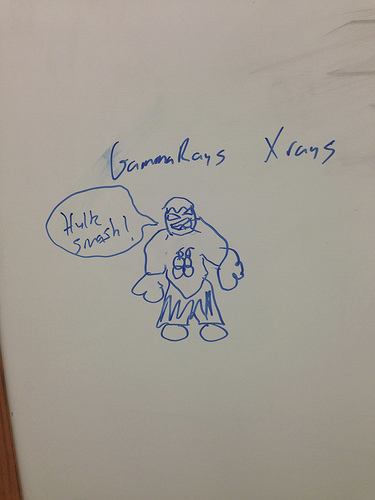 Gamma Rays X rays
Hulk
smash!